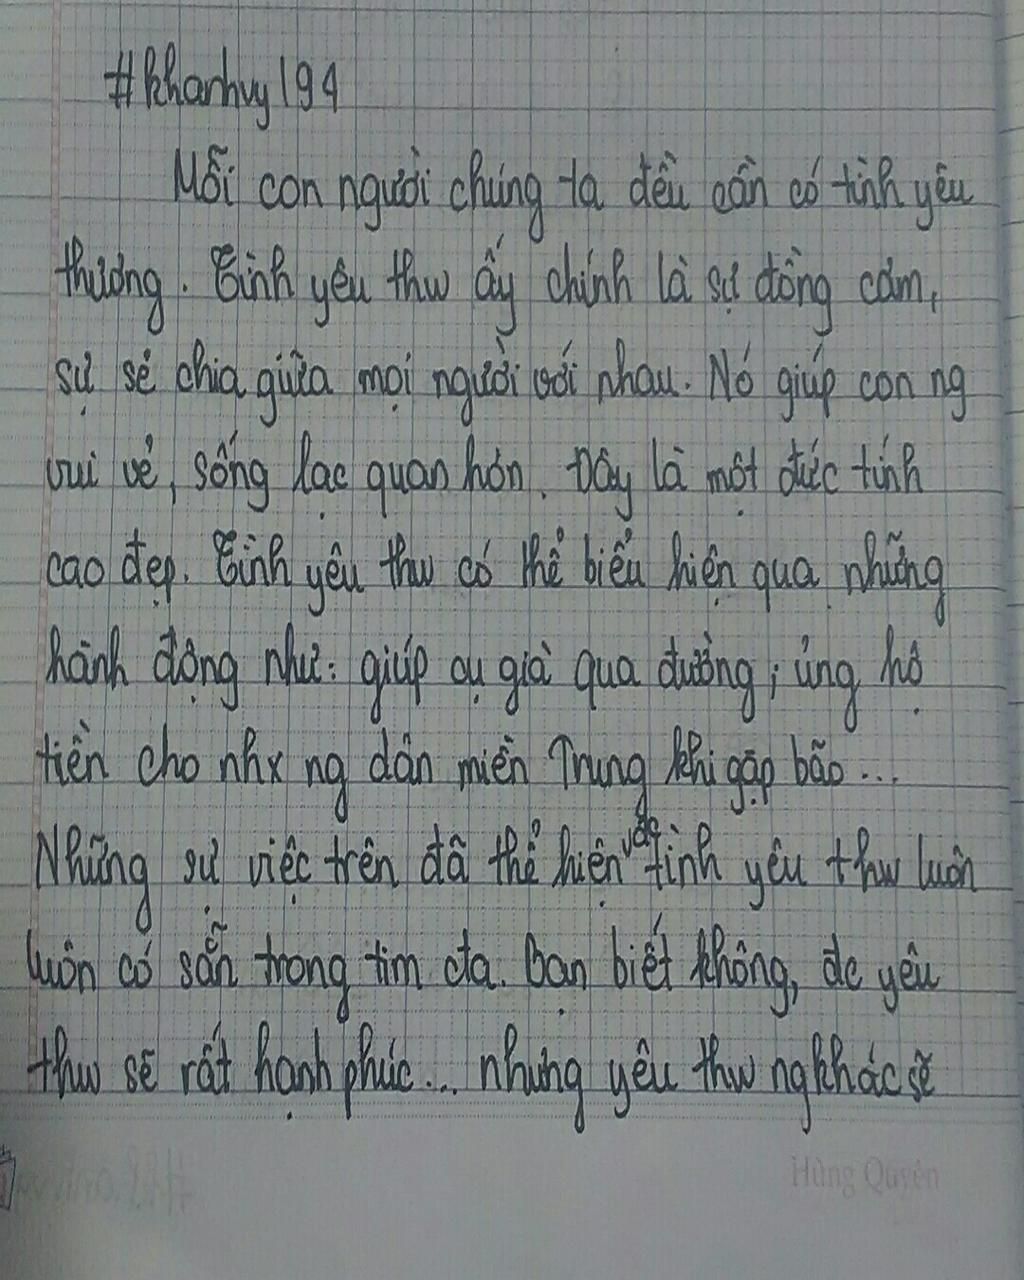 #khanhvy194
Mỗi con người chúng ta đều cần có tình yêu
thương. Tình yêu thw ấy chính là sự đồng cảm,
sự sẻ chia giữa mọi người với nhau. Nó giúp con ng
vui vẻ, sống lạc quan hơn. Đây là một đức tính
cao đẹp. Tình yêu thw có thể biểu hiện qua những
hành động như: giúp cụ già qua đường; ủng hộ
tiền cho nhx ng dân miền Trung khi gặp bão...
Những sự việc trên đã thể hiện tình yêu thw luôn
luôn có sẵn trong tim cta. Bạn biết không, đc yêu
thw sẽ rất hạnh phúc... nhưng yêu thw ng khác sẽ
Hùng Quyên